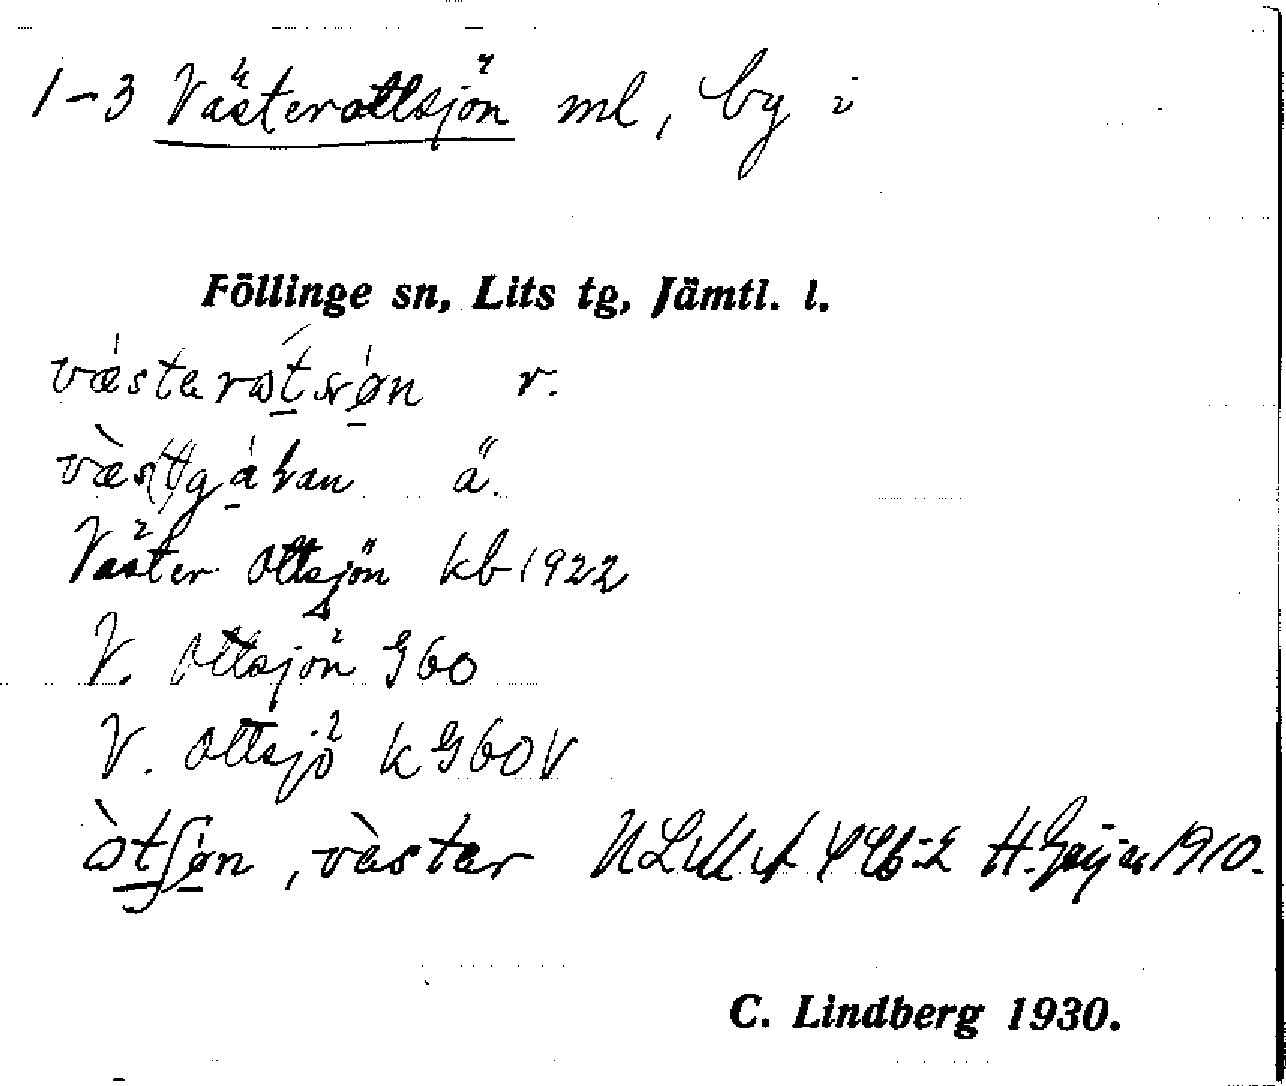 1-3 Västerottsjön ml, by i
Föllinge sn, Lits tg, Jämtl. l.
væstarɷtsøn r.
ä.
Väster Ottsjön kb 1922
V. Ottsjön G60
V. Ottsjö k G60V
ɷtʃøn, væstar H. Geijer 1910.
C. Lindberg 1930.